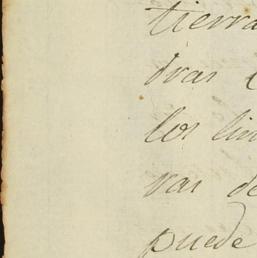 tierra
dras
los lin
var de
puede